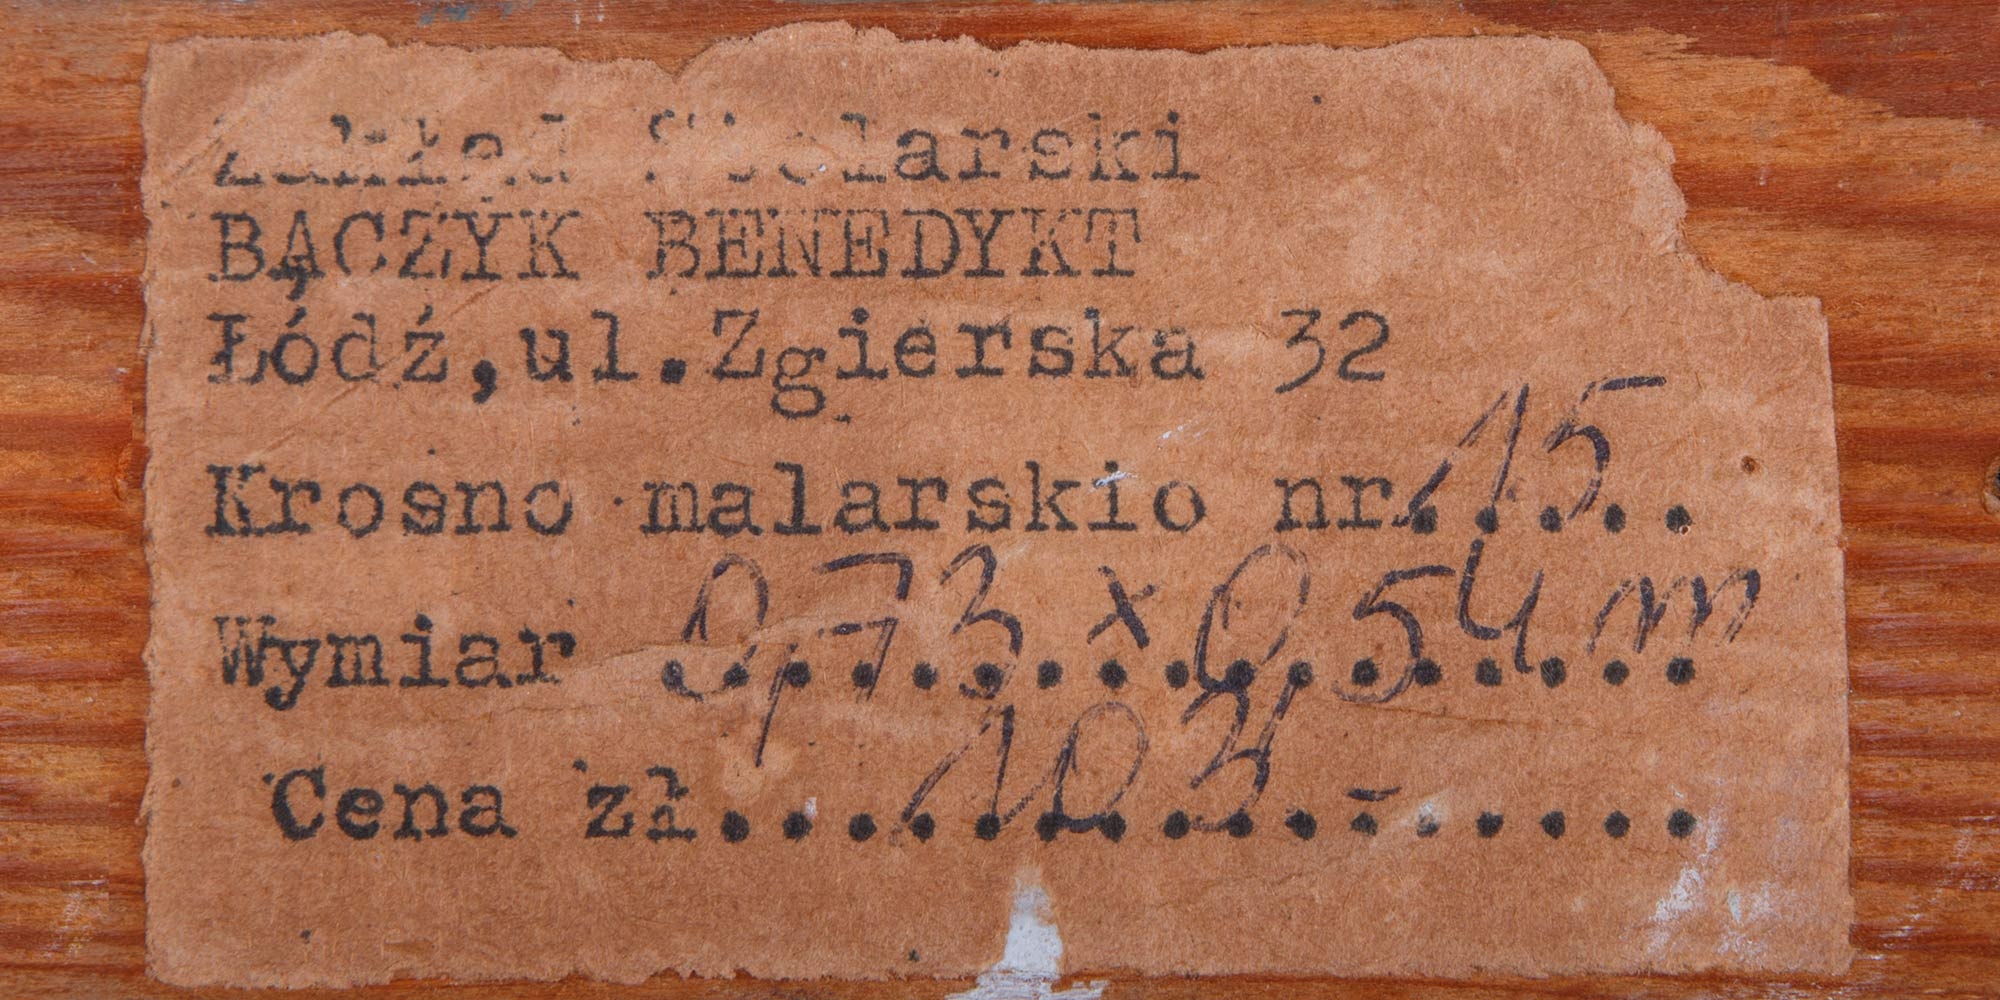 Zakład Stolarski
BĄCZYK BENEDYKT
Łódź,ul.Zgierska 32
Krosno malarskie nr. 15
Wymiar 0,73 x 0,54 m
Cena zł 103,-